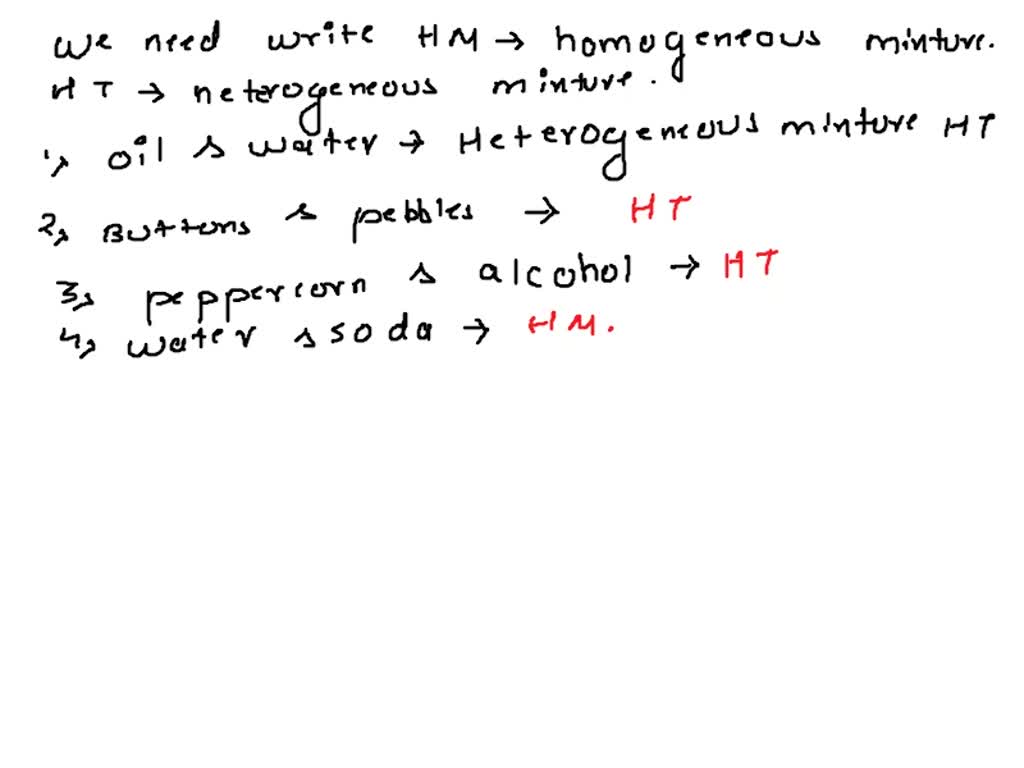 We need write HM → homogeneous minture.
HT → heterogeneous minture.
1, oil & water → Heterogeneous minture HT
2, Buttons & pebbles → HT
3, peppercorn & alcohol → HT
4, water & soda → HM.